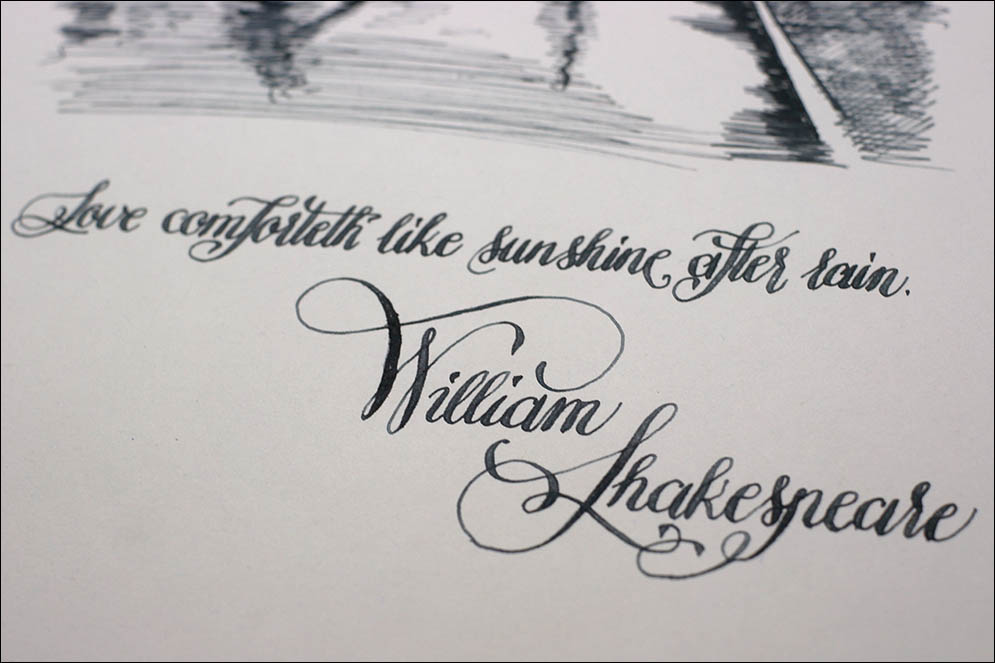 Love comforteth like sunshine after rain.
William
Shakespeare